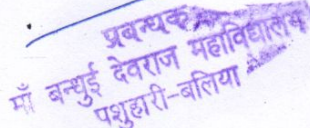 प्रबन्धक
माँ बन्धुई देवराज महाविद्यालय
पशुहारी-बलिया